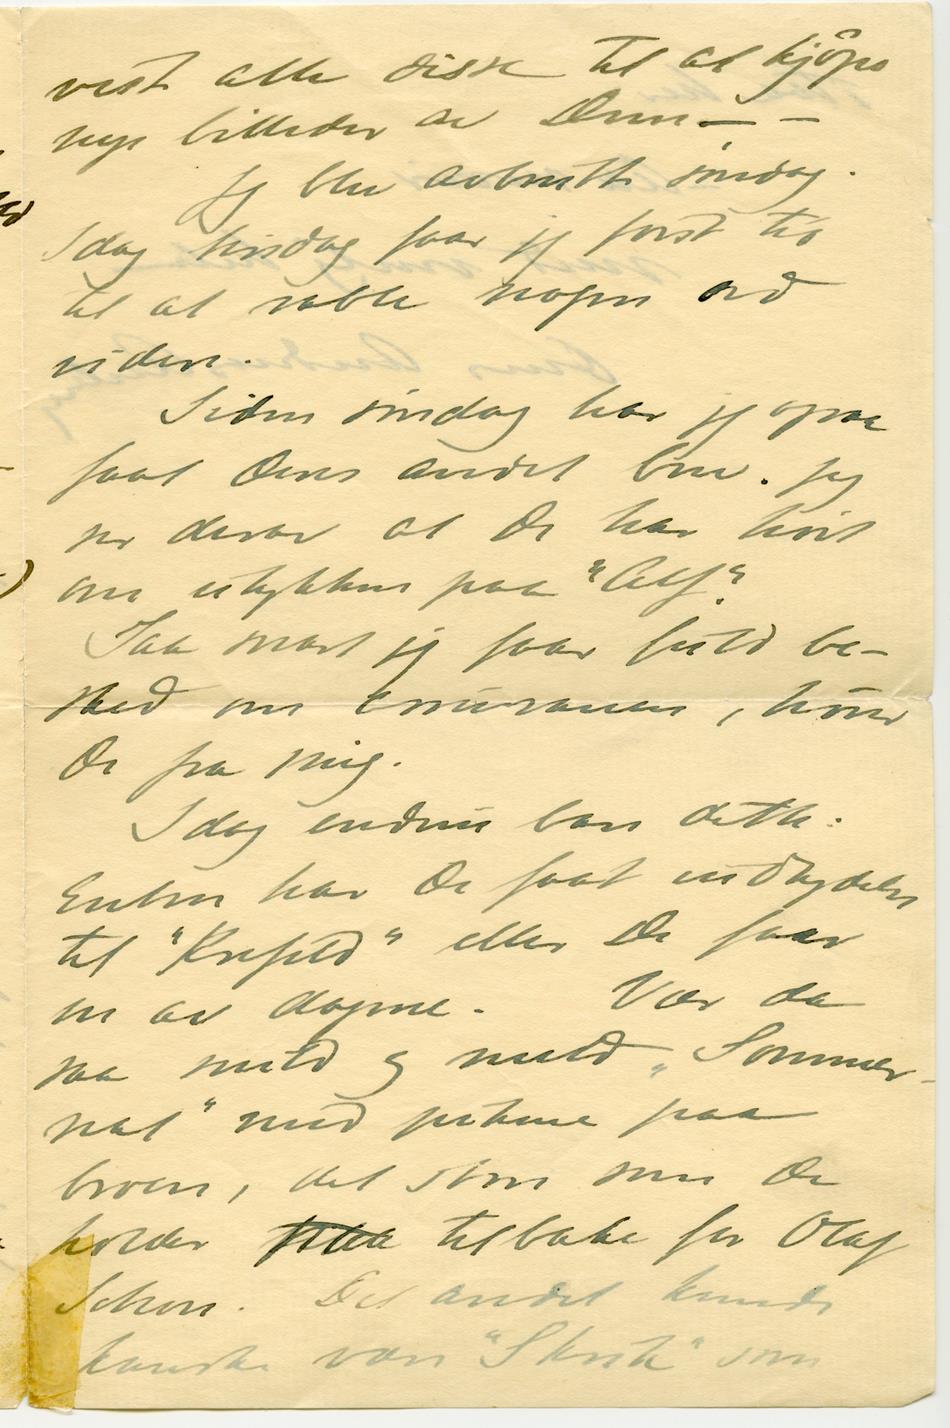 vist alle disse til at kjöpe
nye billeder av Dem — –
Jeg blev avbrutt söndag.
Idag tirsdag faar jeg först tid
til at rable nogen ord
videre.
Siden söndag har jeg ogsaa
faat Deres andet brev. Jeg
ser derav at De har hört
om ulykken paa "Alf".
Saa snart jeg faar fuld be-
sked om assurancen, hörer
De fra mig.
Idag endnu bare dette:
Enten har De faat indbydelse
til "Krefeld" eller De faar
en av dagene. Vær da
saa snild og meld "Sommer-
nat" med pikene paa
broen, det store som De
holder tilbake for Olaf
Schou. Det andet kunde
kanske være "Skrik" som